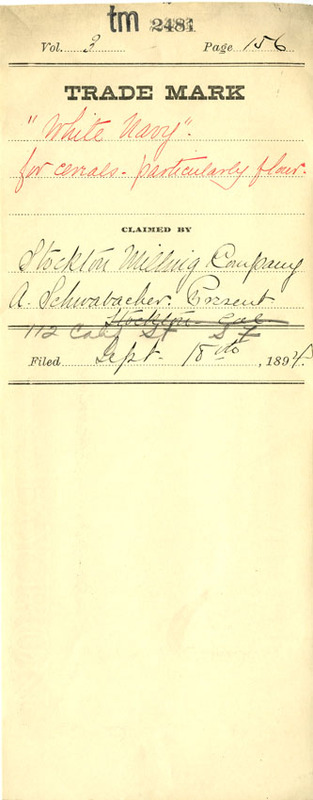 tm 2481
Vol. 3 Page 156
TRADE MARK
"White Navy".
for cereals - particularly flour.
CLAIMED BY
Stockton Milling Company
A. Schwabacher. Present
Stockton Cal
112 Cal St S F
Filed Sept. 18th, 1894.